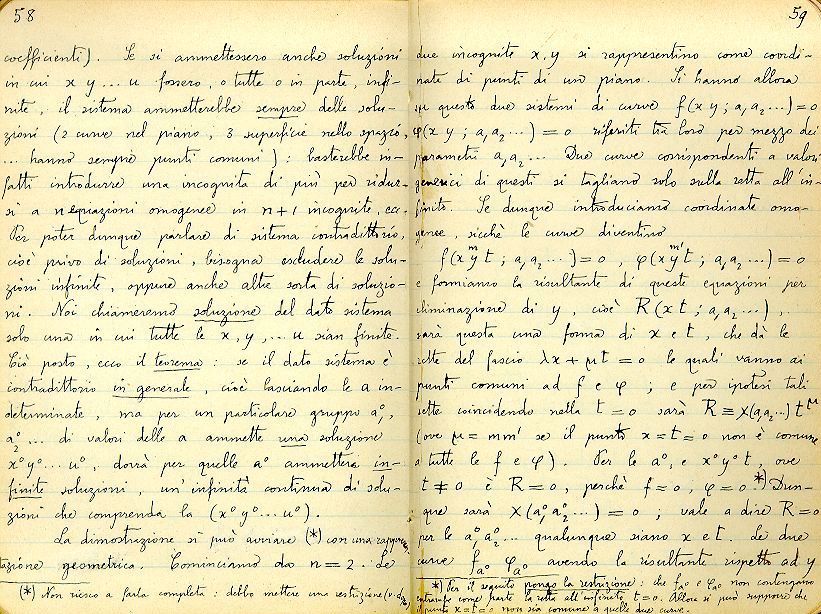 58
coefficienti). Se si ammettessero anche soluzioni
in cui x y ... u fossero, o tutte o in parte, infi-
nite, il sistema ammetterebbe sempre delle solu-
zioni (2 curve nel piano, 3 superficie nello spazio,
... hanno sempre punti comuni): basterebbe in-
fatti introdurre una incognita di più per ridur-
si a n equazioni omogenee in n+1 incognite, ecc.
Per poter dunque parlare di sistema contradittorio,
cioè privo di soluzioni, bisogna escludere le solu-
zioni infinite, oppure anche altre sorta di soluzio-
ni. Noi chiameremo soluzione del dato sistema
solo una in cui tutte le x, y, ... u sian finite.
Ciò posto, ecco il teorema: se il dato sistema è
contradittorio in generale, cioè lasciando le a in-
determinate, ma per un particolare gruppo a₁⁰,
a₂⁰ ... di valori delle a ammette una soluzione
x⁰y⁰ ... u⁰, dovrà per quelle a⁰ ammettere in-
finite soluzioni, un'infinità continua di solu-
zioni che comprenda la (x⁰y⁰ ... u⁰).
La dimostrazione si può avviare (*) con una rappresen-
tazione geometrica. Cominciamo da n = 2. Le
(*) Non riesco a farla completa: debbo mettere una restrizione
59
due incognite x, y si rappresentino come coordi-
nate di punti di un piano. Si hanno allora
in questo due sistemi di curve f(x y; a₁ a₂ ...) = 0
φ(x y; a₁ a₂ ...) = 0 riferiti tra loro per mezzo dei
parametri a₁ a₂ ... Due curve corrispondenti a valori
generici di questi si tagliano solo sulla retta all'in-
finito. Se dunque introduciamo coordinate omo-
genee, sicchè le curve diventino
f(x y t; a₁ a₂ ...) = 0, φ(x y t; a₁ a₂ ...) = 0
m m'
e formiamo la risultante di queste equazioni per
eliminazione di y, cioè R(x t; a₁ a₂ ...),
sarà questa una forma di x e t, che dà le
rette del fascio λx + μt = 0 le quali vanno ai
punti comuni ad f e φ; e per ipotesi tali
rette coincidendo nella t = 0 sarà R ≡ χ(a₁a₂ ...) t^μ
(ove μ = mm' se il punto x = t = 0 non è comune
a tutte le f e φ). Per le a⁰, e x⁰y⁰t, ove
t ≠ 0 è R = 0, perchè f = 0, φ = 0. *) Dun-
que sarà χ(a₁⁰a₂⁰ ...) = 0; vale a dire R = 0
per le a₁⁰a₂⁰ ... qualunque siano x e t. Le due
curve f_a⁰ φ_a⁰ avendo la risultante rispetto ad y
*) Per il seguito pongo la restrizione: che f_a⁰ e φ_a⁰ non contengano
entrambe come parte la retta all'infinito t = 0. Allora si può supporre che
il punto x = t = 0 non sia comune a quelle due curve.